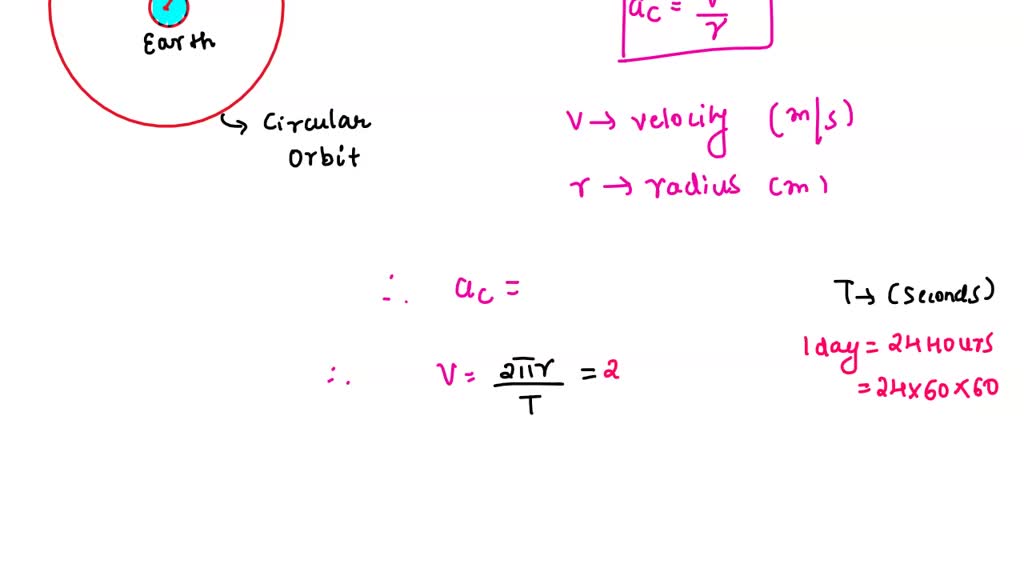 Earth
ac = v/r
Circular
orbit
v → velocity (m/s)
r → radius (m)
∴ ac =
T → (seconds)
1 day = 24 HOURS
= 24×60×60
∴ V = 2πr/T = 2